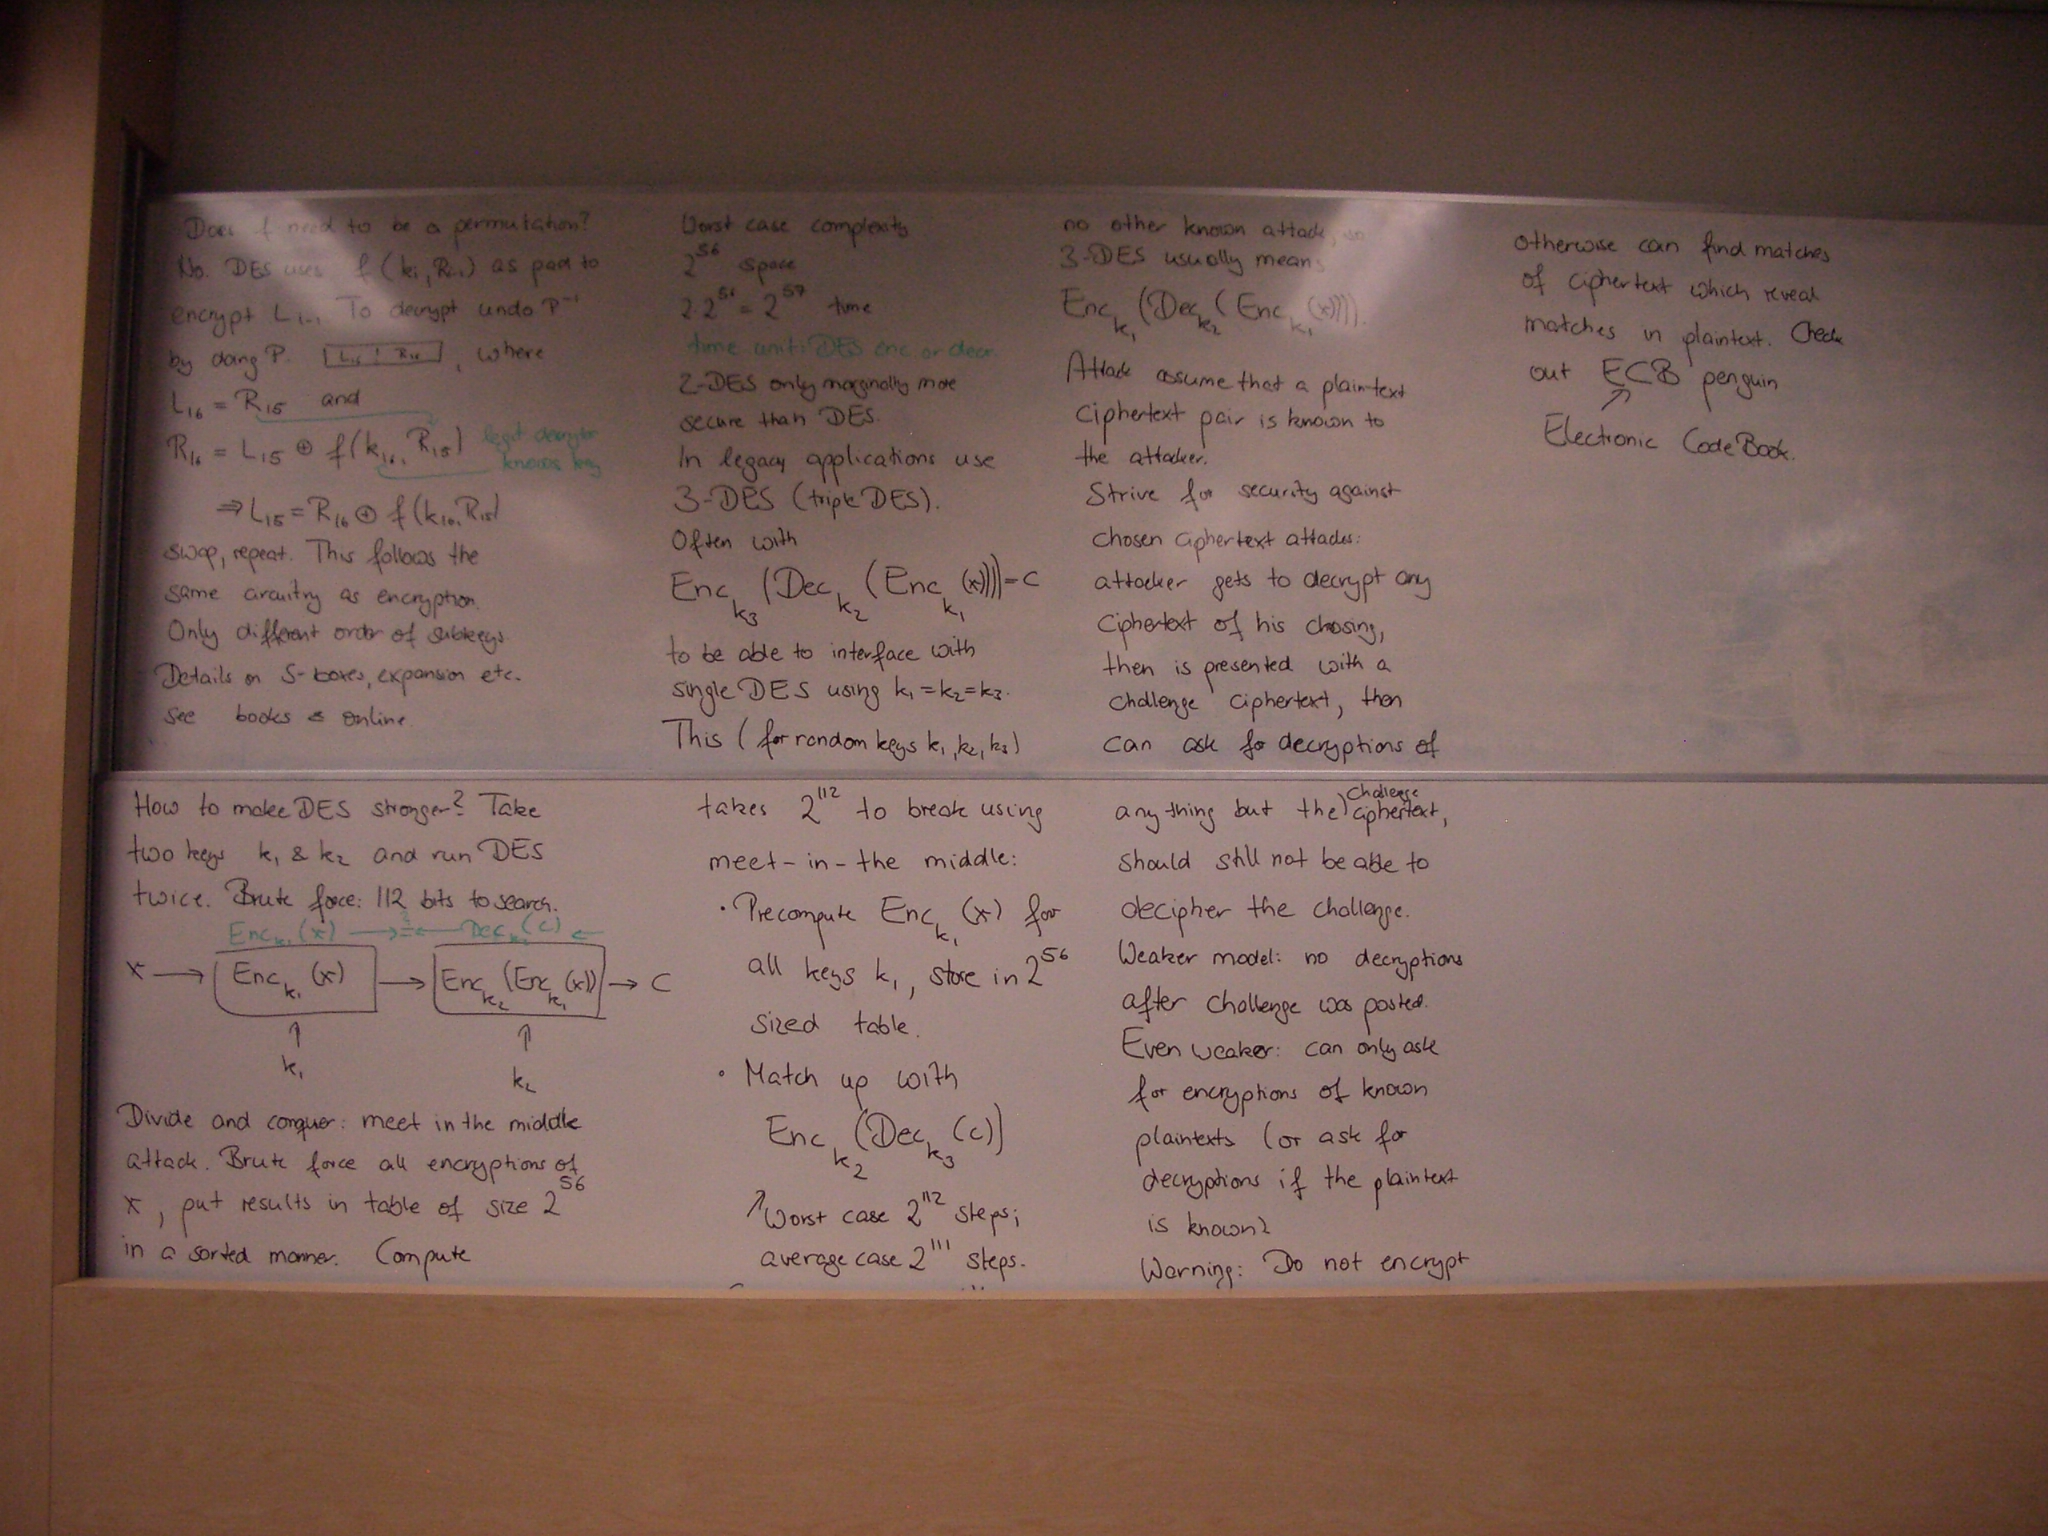 Does f need to be a permutation?
No. DES uses f(ki, Ri-1) as pad to
encrypt Li-1. To decrypt undo P⁻¹
by doing P. L16 | R16, where
L16 = R15 and
R16 = L15 ⊕ f(k16, R15) legit decryptor
knows key
⇒ L15 = R16 ⊕ f(k16, R15)
swap, repeat. This follows the
same circuitry as encryption.
Only different order of subkeys.
Details on S-boxes, expansion etc.
see books & online.
How to make DES stronger? Take
two keys k1 & k2 and run DES
twice. Brute force: 112 bits to search.
Enck1(x) → ≟ ← Dec (c) ←
x → Enck1(x) → Enck2(Enck1(x)) → C
↑ ↑
k1 k2
Divide and conquer: meet in the middle
attack. Brute force all encryptions of
x, put results in table of size 2⁵⁶
in a sorted manner. Compute
Worst case complexity
2⁵⁶ space
2·2⁵⁶ = 2⁵⁷ time
time unit: DES enc or decr.
2-DES only marginally more
secure than DES.
In legacy applications use
3-DES (triple DES).
Often with
Enck3(Deck2(Enck1(x))) = C
to be able to interface with
single DES using k1=k2=k3.
This (for random keys k1, k2, k3)
takes 2¹¹² to break using
meet-in-the middle:
· Precompute Enck1(x) for
all keys k1, store in 2⁵⁶
sized table.
· Match up with
Enck2(Deck3(c))
↗ Worst case 2¹¹² steps;
average case 2¹¹¹ steps.
no other known attack, so
3-DES usually means
Enck1(Deck2(Enck1(x))).
Attack assume that a plaintext
ciphertext pair is known to
the attacker.
Strive for security against
chosen ciphertext attacks:
attacker gets to decrypt any
ciphertext of his chosing,
then is presented with a
challenge ciphertext, then
can ask for decryptions of
anything but the challenge ciphertext,
should still not be able to
decipher the challenge.
Weaker model: no decryptions
after challenge was posted.
Even weaker: can only ask
for encryptions of known
plaintexts (or ask for
decryptions if the plaintext
is known)
Warning: Do not encrypt
otherwise can find matches
of ciphertext which reveal
matches in plaintext. Check
out ECB penguin
↗
Electronic CodeBook.